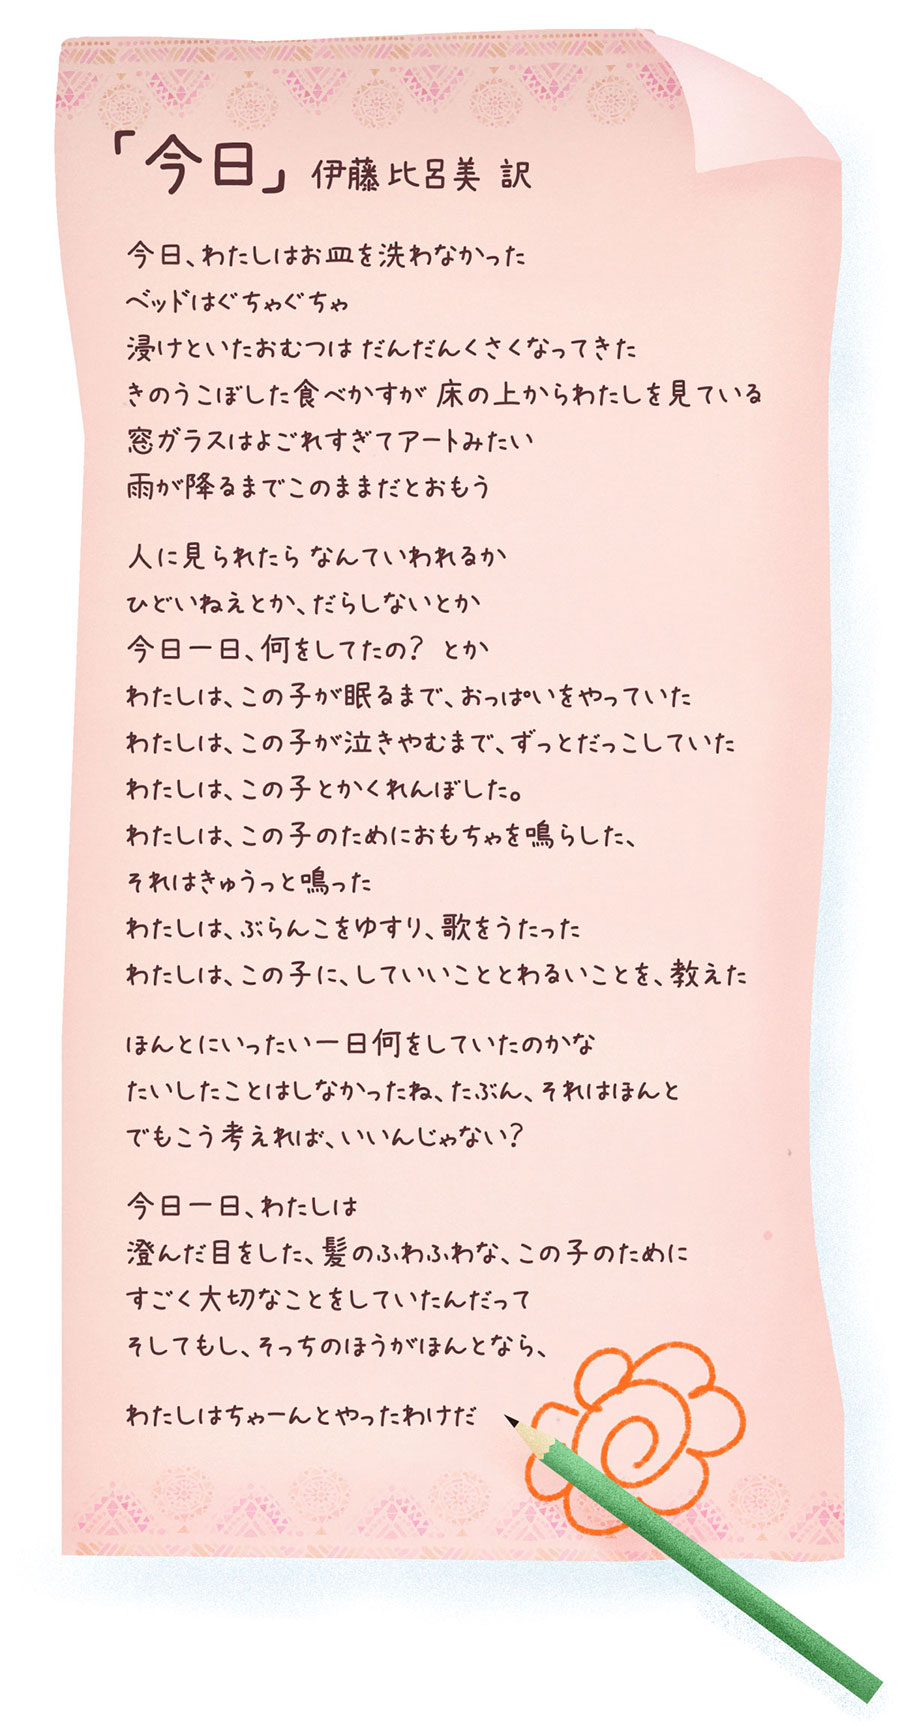 「今日」 伊藤比呂美 訳
今日、わたしはお皿を洗わなかった
ベッドはぐちゃぐちゃ
浸けといたおむつは だんだんくさくなってきた
きのうこぼした食べかすが 床の上からわたしを見ている
窓ガラスはよごれすぎてアートみたい
雨が降るまでこのままだとおもう
人に見られたら なんていわれるか
ひどいねえとか、だらしないとか
今日一日、何をしてたの? とか
わたしは、この子が眠るまで、おっぱいをやっていた
わたしは、この子が泣きやむまで、ずっとだっこしていた
わたしは、この子とかくれんぼした。
わたしは、この子のためにおもちゃを鳴らした、
それはきゅうっと鳴った
わたしは、ぶらんこをゆすり、歌をうたった
わたしは、この子に、していいこととわるいことを、教えた
ほんとにいったい一日何をしていたのかな
たいしたことはしなかったね、たぶん、それはほんと
でもこう考えれば、いいんじゃない?
今日一日、わたしは
澄んだ目をした、髪のふわふわな、この子のために
すごく大切なことをしていたんだって
そしてもし、そっちのほうがほんとなら、
わたしはちゃーんとやったわけだ